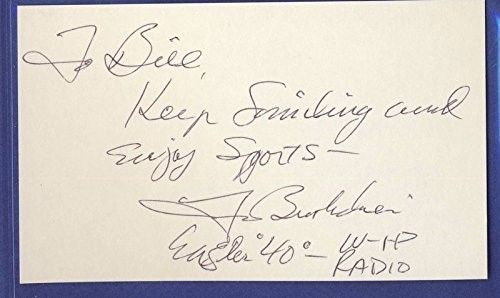 To Bill,
Keep Smiling and
Enjoy Sports —
Eagles "40" — W-IP
RADIO